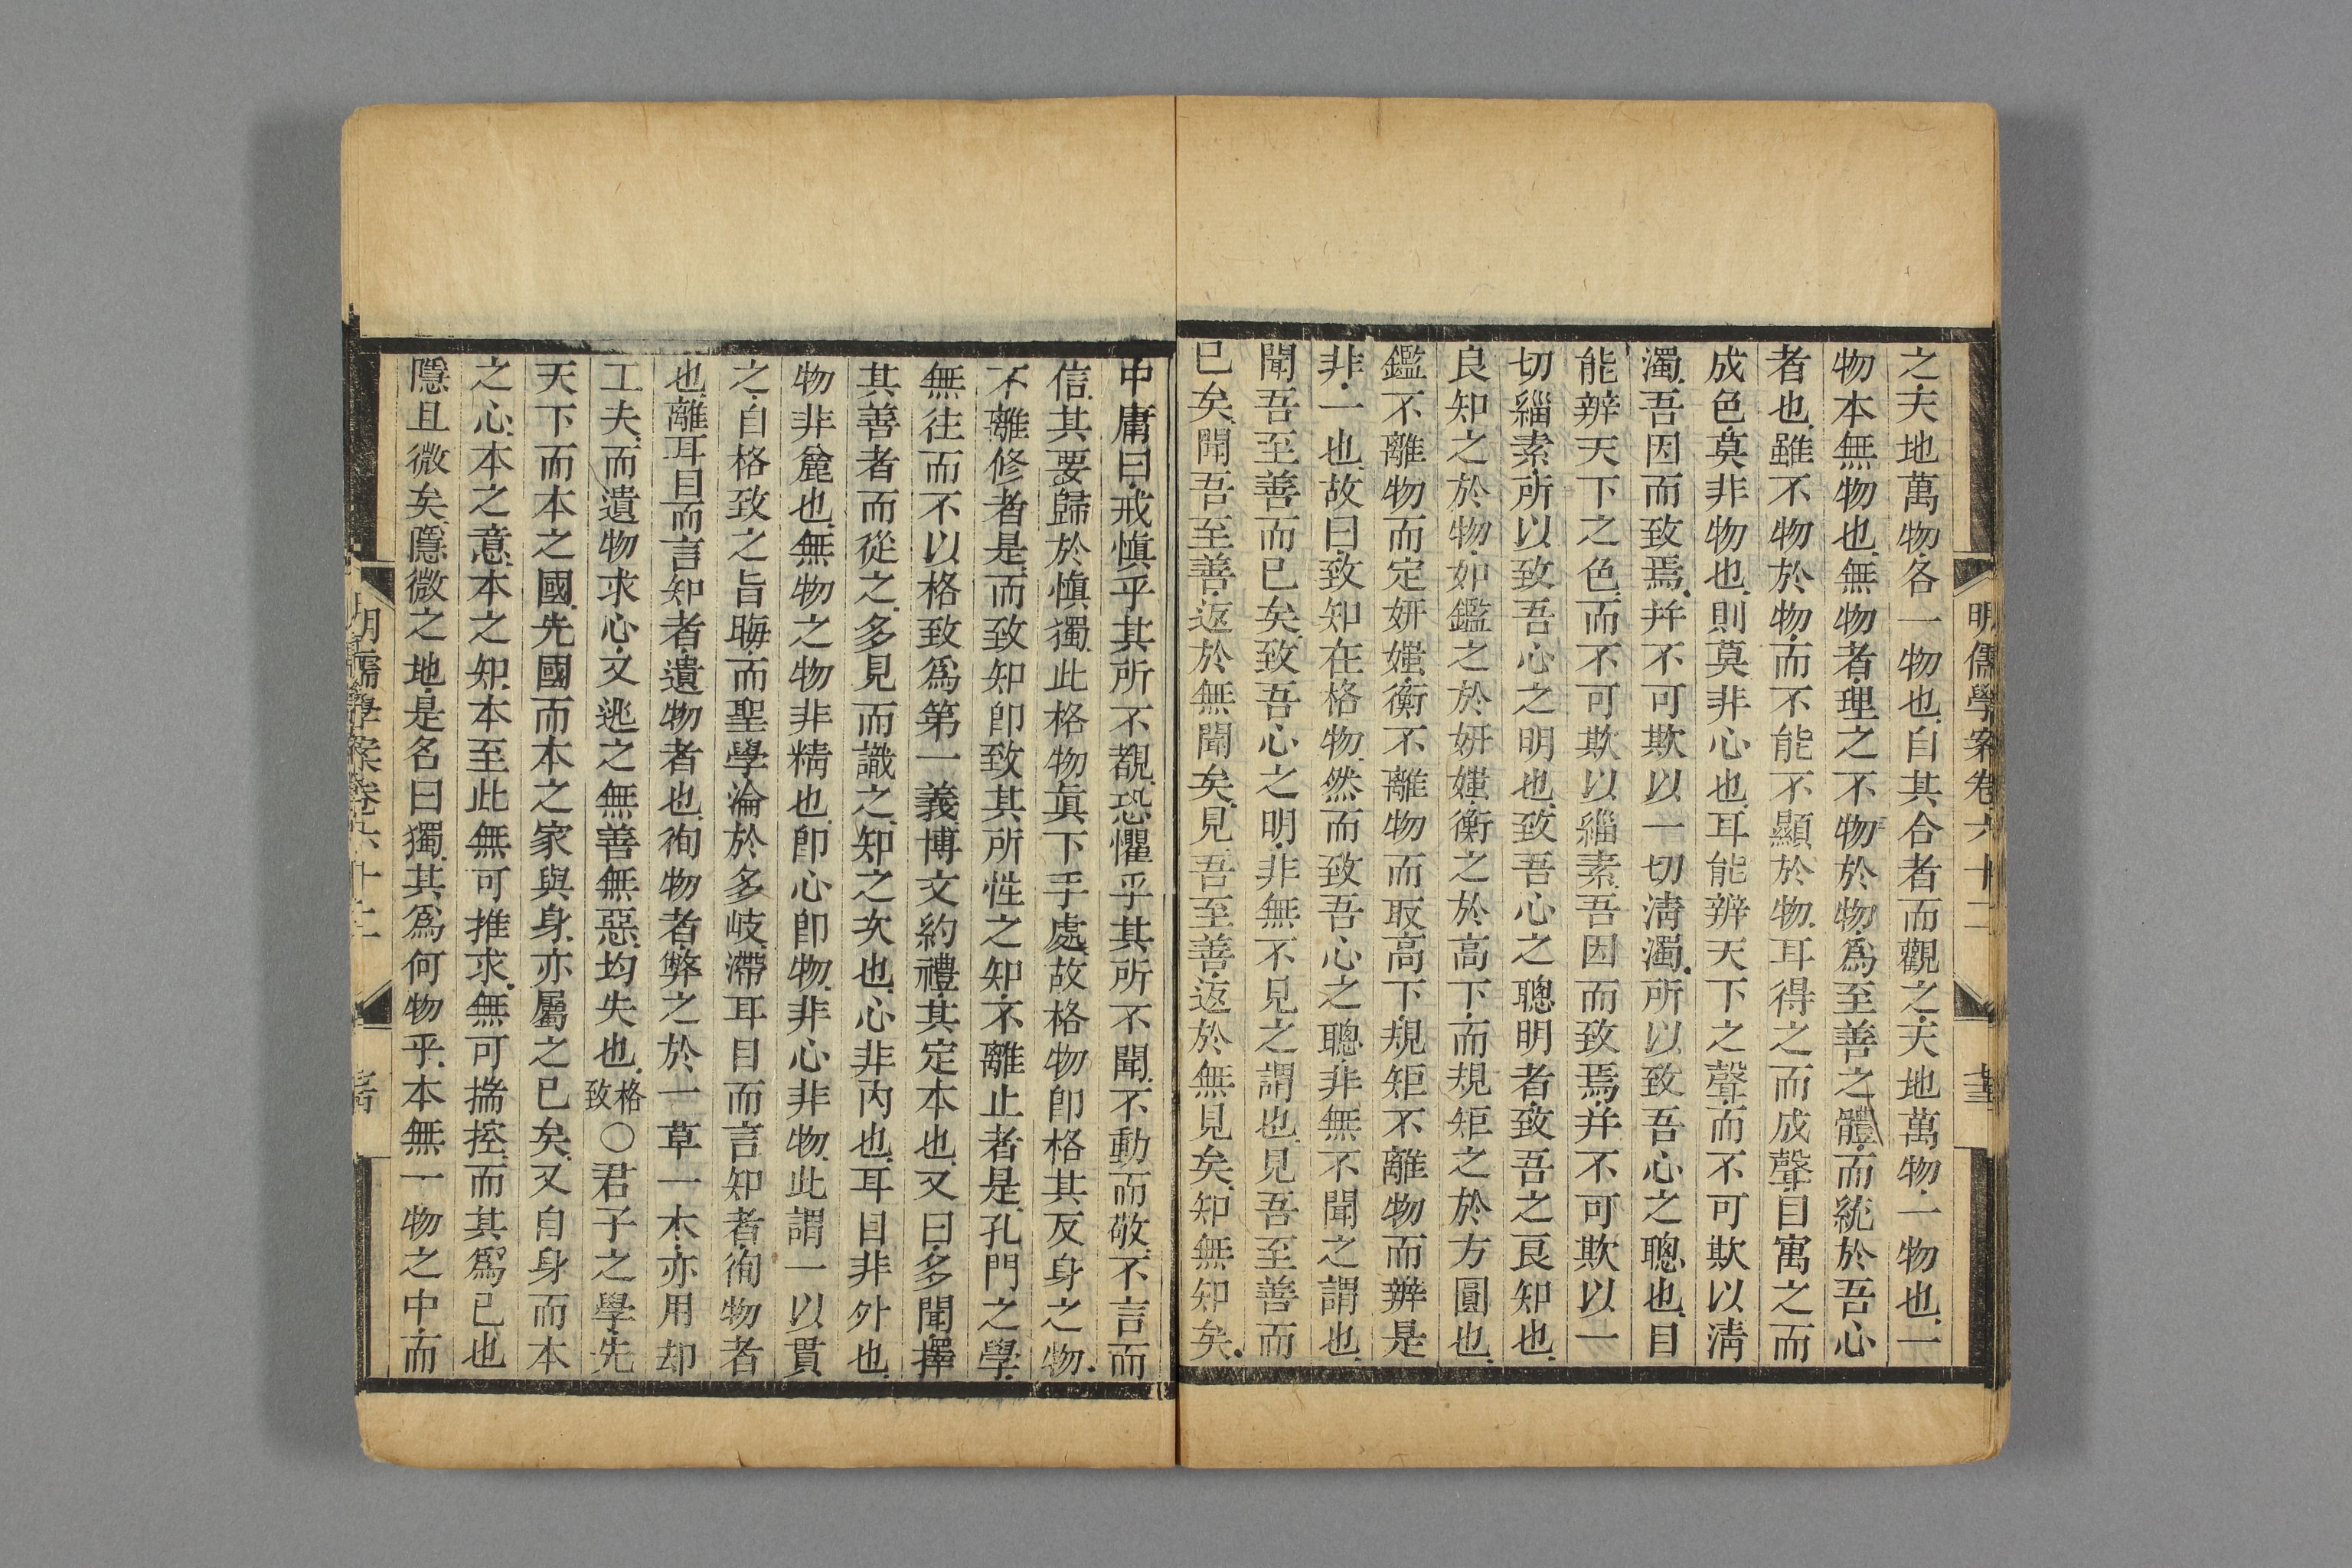 明儒學案卷六十二
之天地萬物各一物也自其合者而觀之天地萬物一物也一
物本無物也無物者理之不物於物爲至善之體而統於吾心
者也雖不物於物而不能不顯於物耳得之而成聲目寓之而
成色莫非物也則莫非心也耳能辨天下之聲而不可欺以淸
濁吾因而致焉幷不可欺以一切淸濁所以致吾心之聰也目
能辨天下之色而不可欺以緇素吾因而致焉幷不可欺以一
切緇素所以致吾心之明也致吾心之聰明者致吾之良知也
良知之於物如鑑之於妍媸衡之於高下而規矩之於方圓也
鑑不離物而定妍媸衡不離物而取高下規矩不離物而辨是
非一也故曰致知在格物然而致吾心之聰非無不聞之謂也
聞吾至善而已矣致吾心之明非無不見之謂也見吾至善而
已矣聞吾至善返於無聞矣見吾至善返於無見矣知無知矣
中庸曰戒愼乎其所不覩恐懼乎其所不聞不動而敬不言而
信其要歸於愼獨此格物眞下手處故格物卽格其反身之物
不離修者是而致知卽致其所性之知不離止者是孔門之學
無往而不以格致爲第一義博文約禮其定本也又曰多聞擇
其善者而從之多見而識之知之次也心非內也耳目非外也
物非麄也無物之物非精也卽心卽物非心非物此謂一以貫
之自格致之旨晦而聖學淪於多岐滯耳目而言知者徇物者
也離耳目而言知者遺物者也徇物者弊之於一草一木亦用却
工夫而遺物求心又逃之無善無惡均失也格致〇君子之學先
天下而本之國先國而本之家與身亦屬之已矣又自身而本
之心本之意本之知本至此無可推求無可揣控而其爲己也
隱且微矣隱微之地是名曰獨其爲何物乎本無一物之中而
明儒學案卷六十二